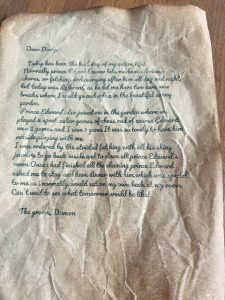 Dear Diary,
Today has been the best day of my entire life!
Normally prince Edward never let me have a break
chores, on fetching and carrying after him all day and night,
but today was different, as he let me have two tea
breaks where I could go and relax in the beautiful
garden.
Prince Edward also joined me in the garden where we
played a good games of chess, and of course Edward
won 2 games, and I won 1 game. It was lovely to have him
out playing with me.
I was ordered by the strict old fat king with all his shiny
jewelry to go back inside and to clean all prince Edward's
room. Once I had finished all the cleaning prince Edward
asked me to stay and have dinner with him, which was special
to me as I normally would eat on my own back at my room.
Can't wait to see what tomorrow would be like!
The groom, Damon